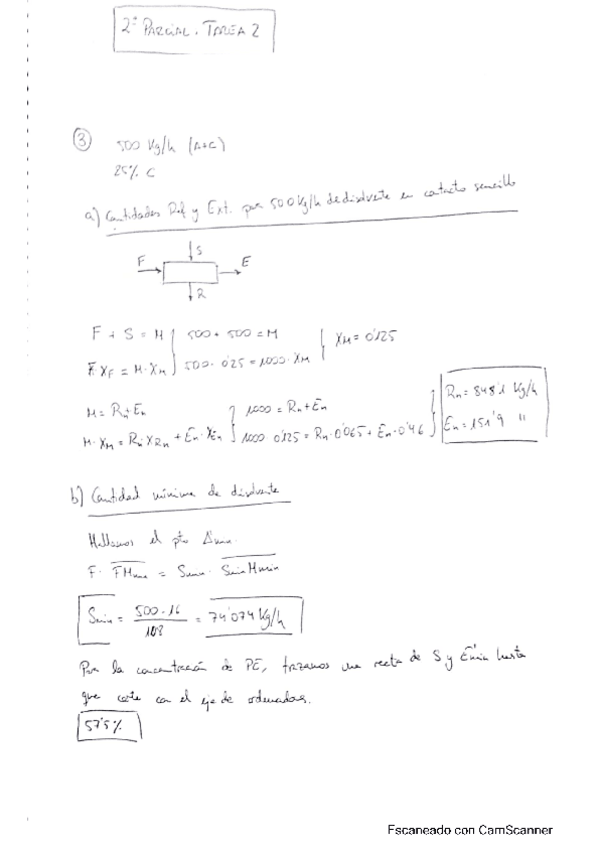 2º PARCIAL. TAREA 2
③ 500 Kg/h (A+C)
25% C
a) Cantidades Ref y Ext. por 500 Kg/h de disolvente en contacto sencillo
F S E R
F + S = M 500 + 500 = M XM = 0'125
F·XF = M·XM 500·0'25 = 1000·XM
M = Rn+En 1000 = Rn+En Rn = 848'1 Kg/h
M·XM = Rn·XRn + En·XEn 1000·0'125 = Rn·0'065 + En·0'46 En = 151'9 "
b) Cantidad mínima de disolvente
Hallamos el pto Δmin.
F· FMmin = Smin· SminMmin
Smin = 500·16 / 108 = 74'074 Kg/h
Por la concentración de PE, trazamos una recta de S y Emin hasta
que corte con el eje de ordenadas.
57'5%
Escaneado con CamScanner